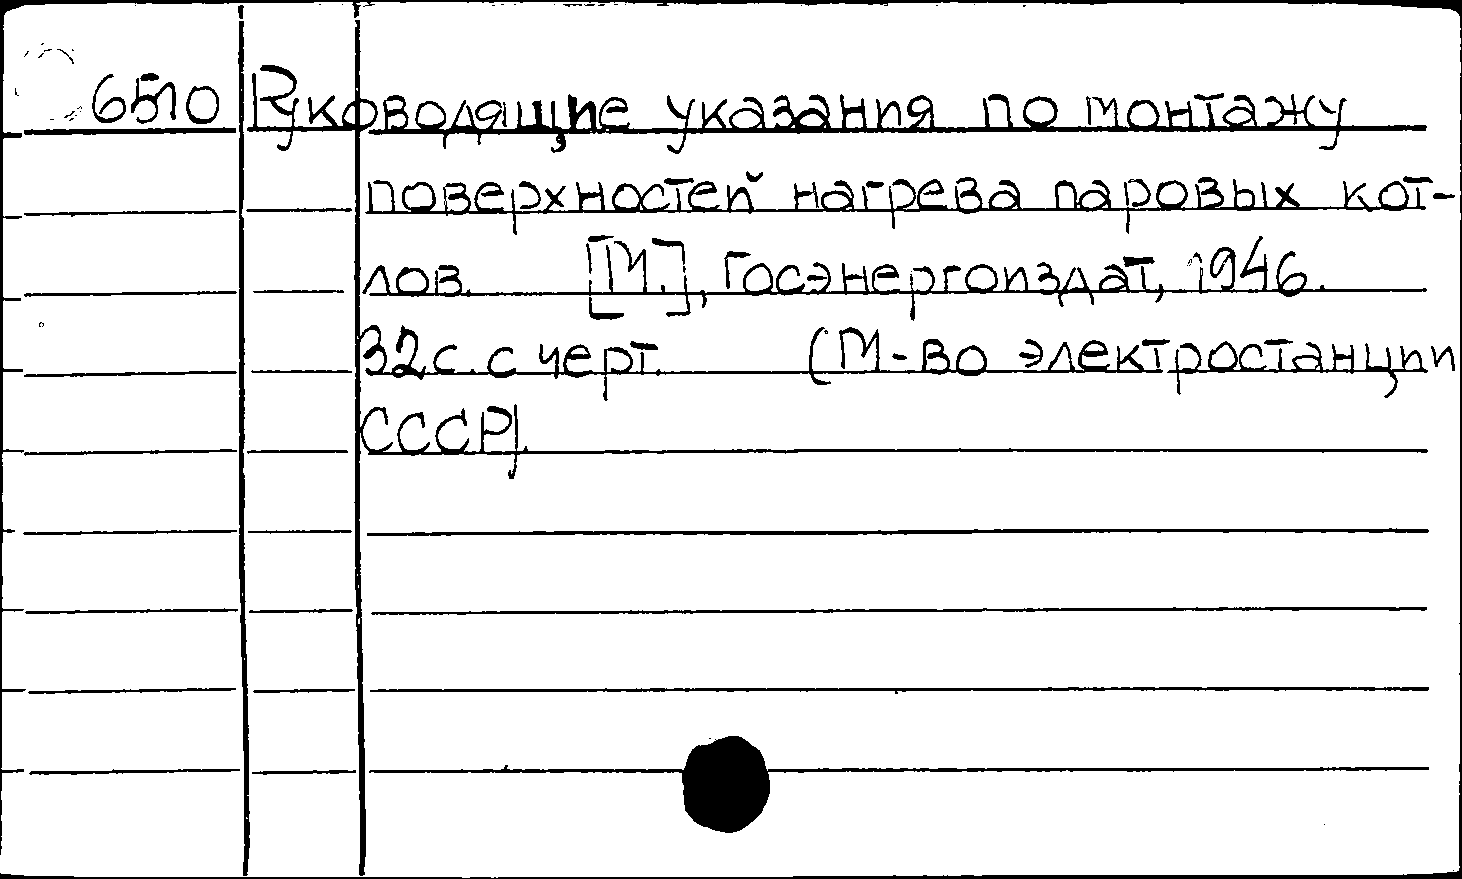 6510 Руководящие указания по монтажу
поверхностей нагрева паровых кот-
лов. [М.], Госэнергоиздат, 1946.
32 с. с черт. (М-во электростанции
СССР).